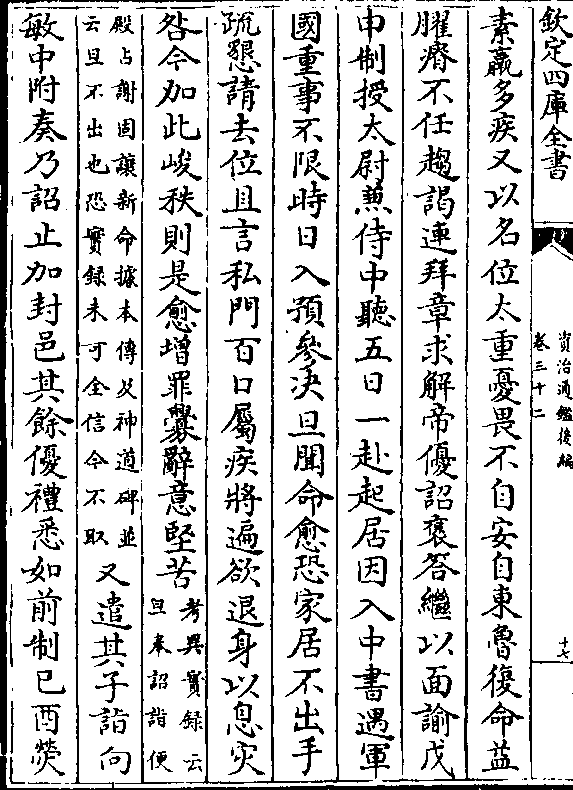 欽定四庫全書
資治通鑑後編
卷三十二
十七
素羸多疾又以名位太重憂畏不自安自東魯復命益
臞瘠不任趨謁連拜章求解帝優詔褒答繼以面諭戊
申制授太尉兼侍中聽五日一赴起居因入中書遇軍
國重事不限時日入預參決旦聞命愈恐家居不出手
疏懇請去位且言私門百口屬疾將遍欲退身以息災
咎今加此峻秩則是愈增罪釁辭意堅苦
考異實録云
旦奉詔詣便
殿占謝固讓新命據本傳及神道碑並
云旦不出也恐實録未可全信今不取
又遣其子詣向
敏中附奏乃詔止加封邑其餘優禮悉如前制已酉熒